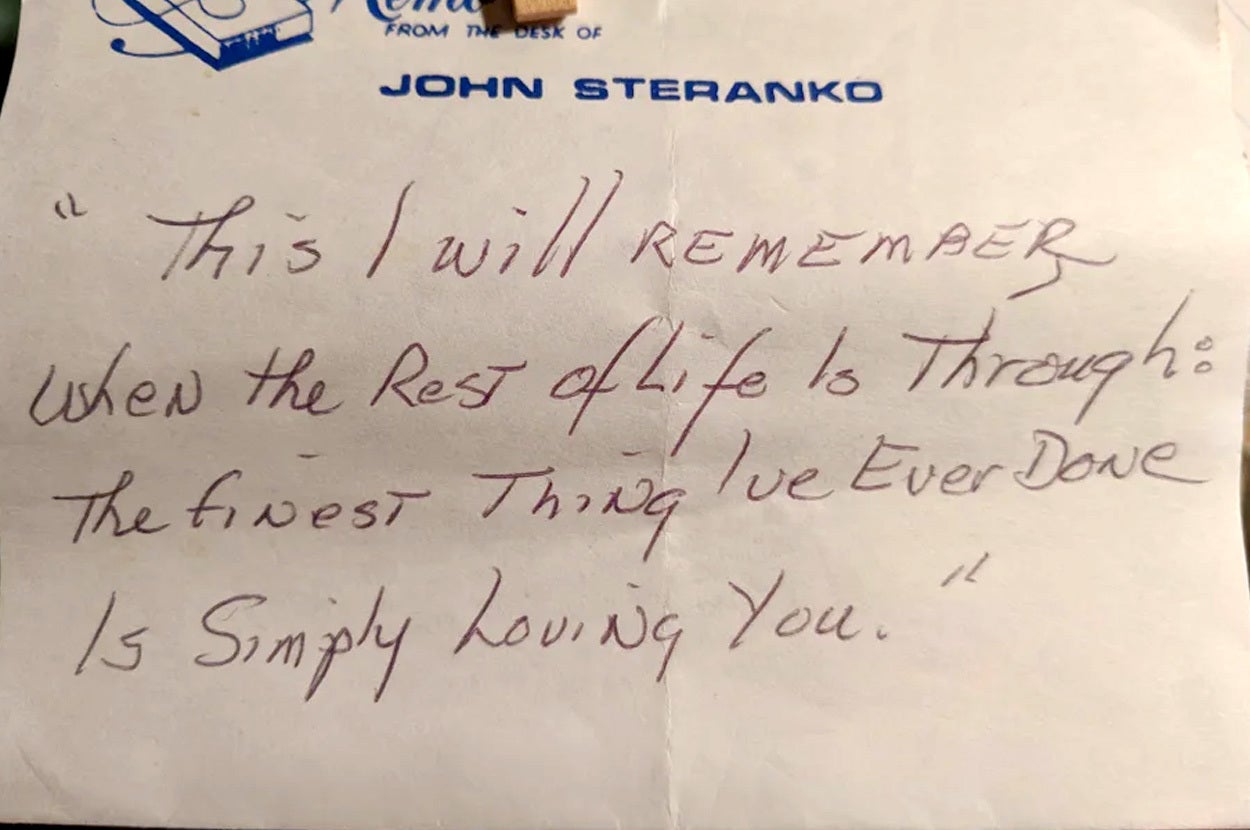 FROM THE DESK OF
JOHN STERANKO
"This I will REMEMBER
When the Rest of Life Is Through:
The finest Thing I've Ever Done
Is Simply Loving You."